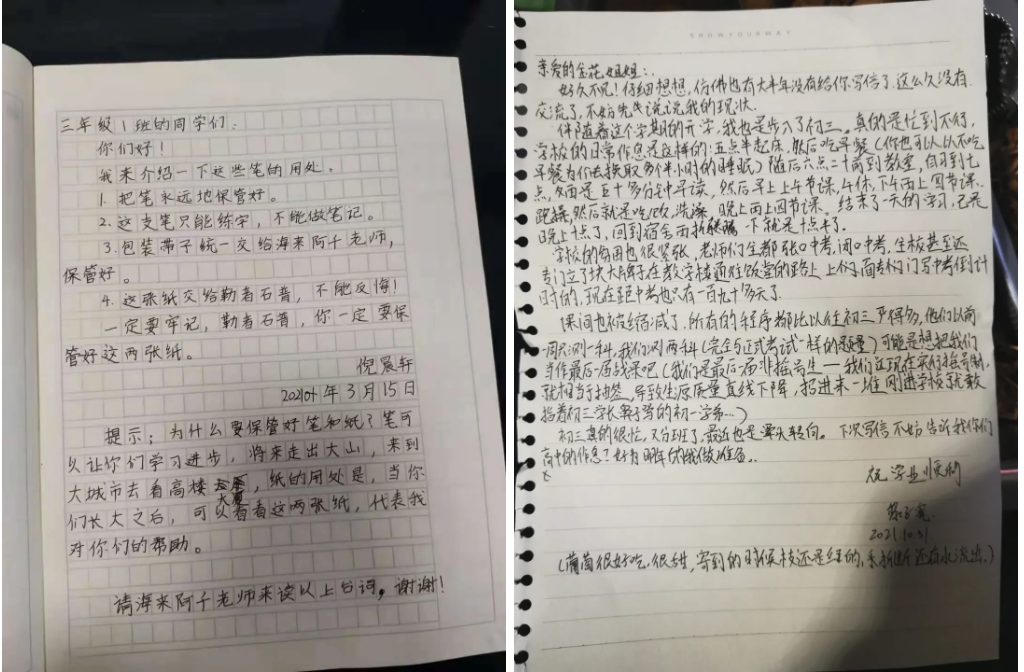 三年级1班的同学们：
你们好！
我来介绍一下这些笔的用处。
1.把笔永远地保管好。
2.这支笔只能练字，不能做笔记。
3.包装带子统一交给海来阿千老师，
保管好。
4.这张纸交给勒者石普，不能反悔！
一定要牢记，勒者石普，你一定要保
管好这两张纸。
倪宸轩
2021年3月15日
提示：为什么要保管好笔和纸？笔可
以让你们学习进步，将来走出大山，来到
大城市去看高楼大厦，纸的用处是，当你
们长大之后，可以看看这两张纸，代表我
对你们的帮助。
请海来阿千老师来读以上台词，谢谢！
SHOWYOURWAY
亲爱的金花姐姐：
好久不见！仔细想想，仿佛也有大半年没有给你写信了。这么久没有
交流了，不妨先说说我的现状。
伴随着这个学期的开学，我也是步入了初三。真的是忙到不行，
学校的日常作息是这样的：五点半起床，然后吃早餐（你也可以以不吃
早餐为代价换取多个半小时的睡眠）随后六点二十前到教室，自习到七
点，然后是五十多分钟早读，然后早上上午节课，午休，下午再上四节课，
跑操，然后就是吃饭，洗澡，晚上再上四节课。结束了一天的学习，已是
晚上十点了，回到宿舍再一下就是十点半了。
学校的氛围也很紧张，老师们全都张口中考，闭口中考，学校甚至还
专门立了块大牌子在教学楼通往饭堂的路上，上面专门写中考倒计
时的，现在距中考也只有一百九十多天了。
课间也被缩减了，所有的程序都比以往初三严得多，他们以前
一周只测一科，我们测两科（完全与正式考试一样的题量）可能是想把我们
当作最后一届战果吧（我们是最后一届非摇号生——我们这现在实行摇号制，
就相当于抽签，导致生源质量直线下降，招进来一堆刚进学校就敢
指着初三学长鼻子骂的初一学弟…）
初三真的很忙，又分班了，最近也是晕头转向。下次写信不妨告诉我你们
高中的作息？好为明年的我做准备。
祝学业顺利
2021.10.31
（葡萄很好吃，很甜，寄到的时候果枝还是绿的，折断还有水流出。）